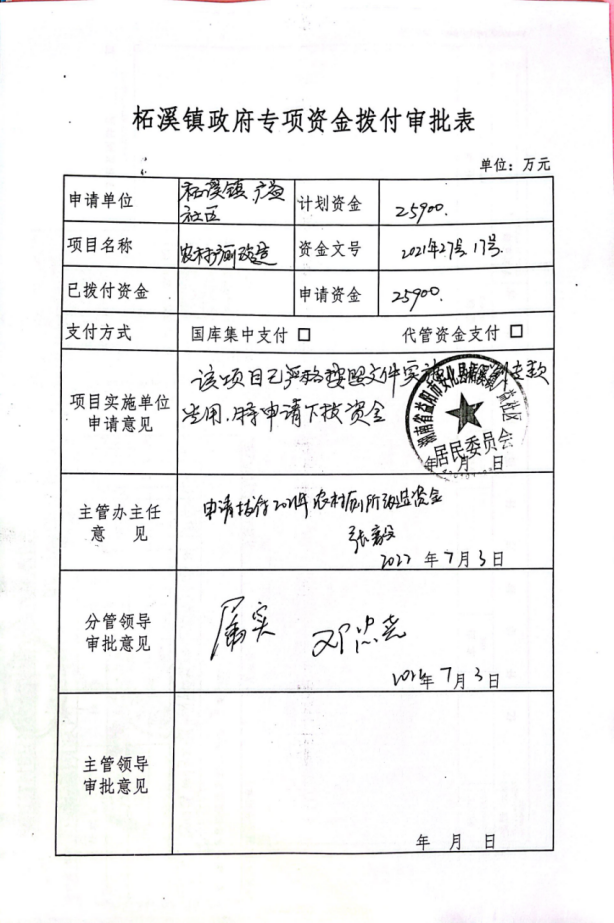 柘溪镇政府专项资金拨付审批表
单位：万元
申请单位 柘溪镇广益社区 计划资金 25900.
项目名称 农村厕所改造 资金文号 2021年27号 17号.
已拨付资金 申请资金 25900.
支付方式 国库集中支付 □ 代管资金支付 □
项目实施单位
申请意见
该项目已严格按照文件实施 专款
专用.特申请下拨资金
湖南省益阳市安化县柘溪镇广益社区
居民委员会
年 月 日
主管办主任
意 见
申请拨付2021年农村厕所改造资金
张毅
2022 年 7 月 3 日
分管领导
审批意见
属实 邓
年 7 月 3 日
主管领导
审批意见
年 月 日